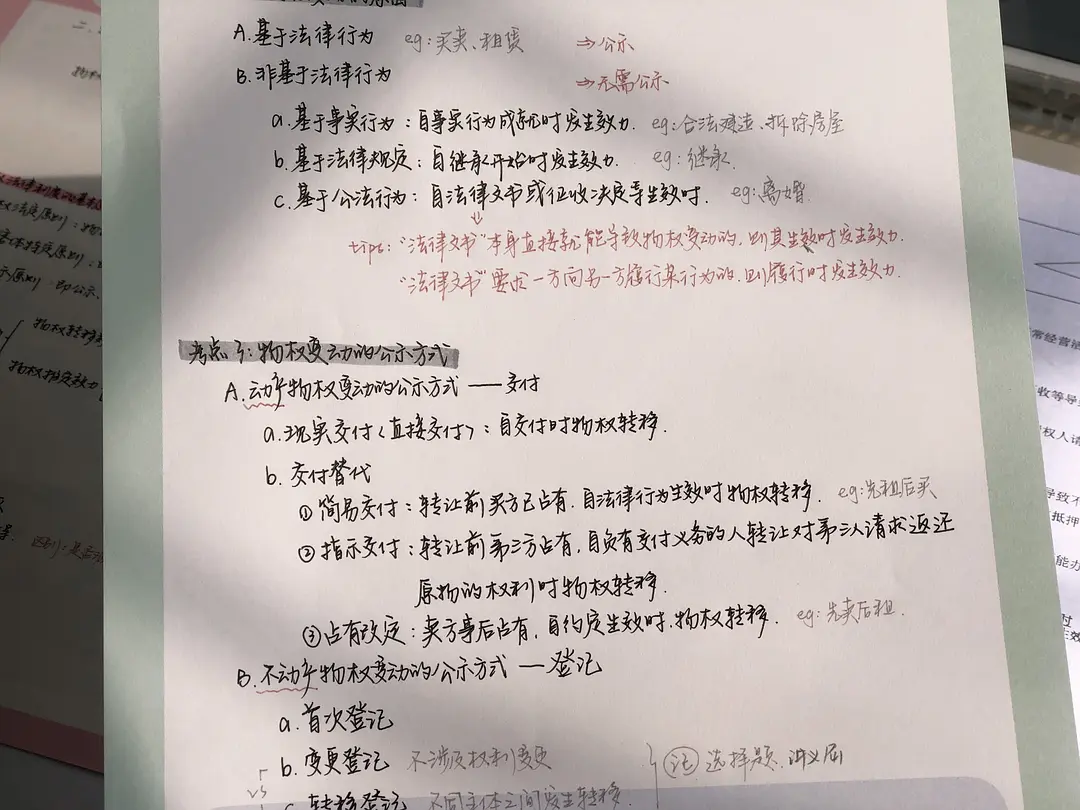 A.基于法律行为 eg:买卖、租赁 ⇒公示
B.非基于法律行为 ⇒无需公示
a.基于事实行为：自事实行为成就时发生效力. eg:合法建造、拆除房屋
b.基于法律规定：自继承开始时发生效力. eg:继承.
c.基于公法行为：自法律文书或征收决定等生效时. eg:离婚.
tips:“法律文书”本身直接就能导致物权变动的,则其生效时发生效力.
“法律文书”要求一方向另一方履行某行为的,则履行时发生效力.
考点3:物权变动的公示方式
A.动产物权变动的公示方式——交付
a.现实交付(直接交付)：自交付时物权转移.
b.交付替代
①简易交付：转让前买方已占有,自法律行为生效时物权转移. eg:先租后买
②指示交付：转让前第三方占有,自负有交付义务的人转让对第三人请求返还
原物的权利时物权转移.
③占有改定：卖方事后占有,自约定生效时,物权转移. eg:先卖后租.
B.不动产物权变动的公示方式—登记
a.首次登记
b.变更登记 不涉及权利变更
vs
c.转移登记 不同主体之间发生转移.
记 选择题.
物权转移
物权推定效力
常经营活
收等导
权人请
导致不
抵押
能力
时